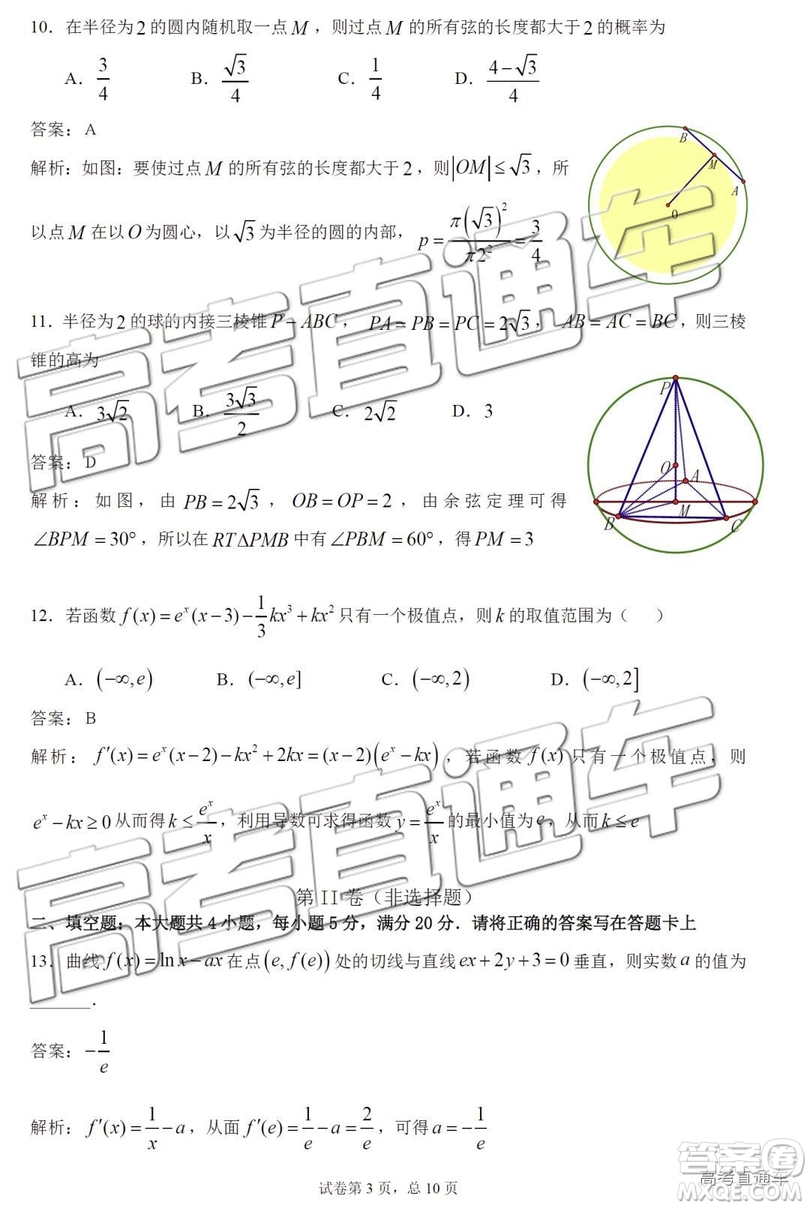 10．在半径为2的圆内随机取一点M，则过点M的所有弦的长度都大于2的概率为
A．3/4  B．√3/4  C．1/4  D．(4−√3)/4
答案：A
解析：如图：要使过点M的所有弦的长度都大于2，则|OM|≤√3，所
以点M在以O为圆心，以√3为半径的圆的内部，p=π(√3)²/π2²=3/4
B
M
A
O
11．半径为2的球的内接三棱锥P−ABC，PA=PB=PC=2√3，AB=AC=BC，则三棱
锥的高为
A．3√2  B．3√3/2  C．2√2  D．3
答案：D
解析：如图，由PB=2√3，OB=OP=2，由余弦定理可得
∠BPM=30°，所以在RTΔPMB中有∠PBM=60°，得PM=3
P
O
A
M
B
C
12．若函数f(x)=eˣ(x−3)−1/3kx³+kx²只有一个极值点，则k的取值范围为（  ）
A．(−∞,e)  B．(−∞,e]  C．(−∞,2)  D．(−∞,2]
答案：B
解析：f′(x)=eˣ(x−2)−kx²+2kx=(x−2)(eˣ−kx)，若函数f(x)只有一个极值点，则
eˣ−kx≥0从而得k≤eˣ/x，利用导数可求得函数y=eˣ/x的最小值为e，从而k≤e
第II卷（非选择题）
二、填空题：本大题共4小题，每小题5分，满分20分．请将正确的答案写在答题卡上
13．曲线f(x)=ln x−ax在点(e,f(e))处的切线与直线ex+2y+3=0垂直，则实数a的值为
______．
答案：−1/e
解析：f′(x)=1/x−a，从面f′(e)=1/e−a=2/e，可得a=−1/e
试卷第3页，总10页
高考直通车
高考直通车
答案圈
高考直通车
MXQE.COM